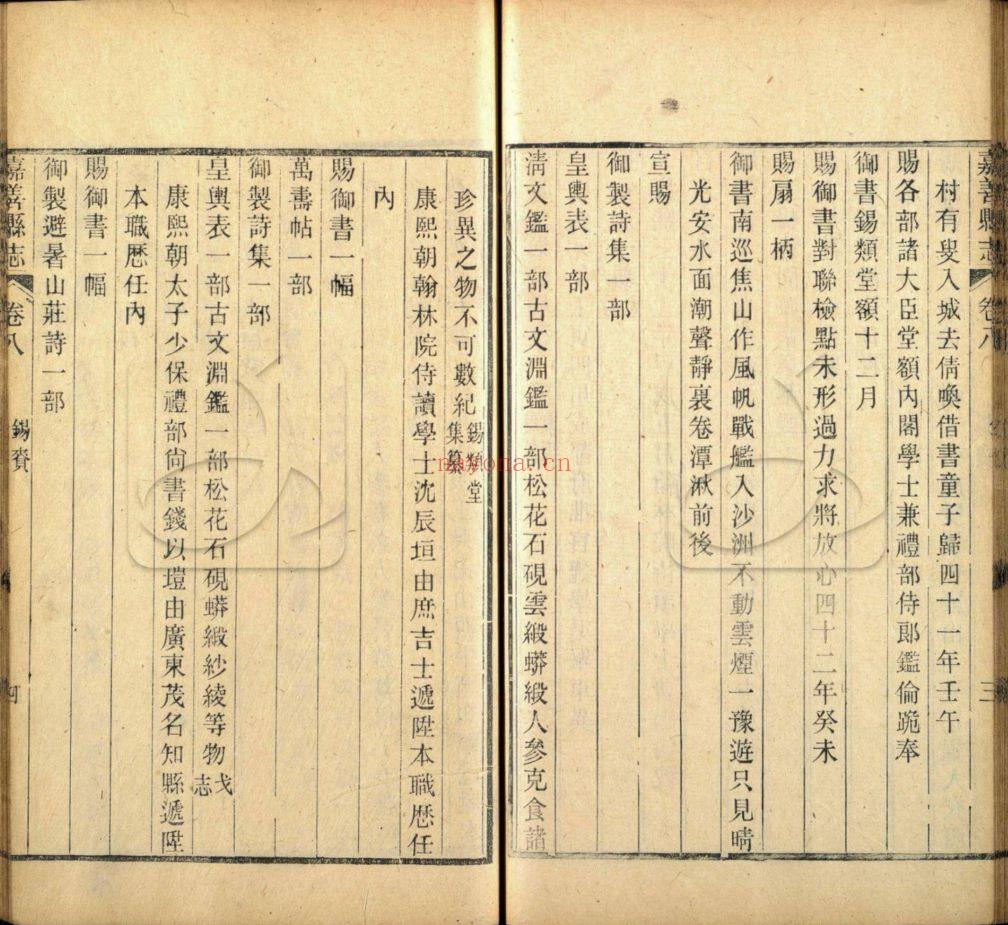 嘉善縣志 卷八 三
村有叟入城去倩喚借書童子歸四十一年壬午
賜各部諸大臣堂額內閣學士兼禮部侍郎鑑倫跪奉
御書錫類堂額十二月
賜御書對聯檢點未形過力求將放心四十二年癸未
賜扇一柄
御書南巡焦山作風帆戰艦入沙洲不動雲煙一豫遊只見晴
光安水面潮聲靜裏卷潭湫前後
宣賜
御製詩集一部
皇輿表一部
淸文鑑一部古文淵鑑一部松花石硯雲緞蟒緞人參克食諸
珍異之物不可數紀錫類堂集纂
康熙朝翰林院侍讀學士沈辰垣由庶吉士遞陞本職歷任
內
賜御書一幅
萬壽帖一部
御製詩集一部
皇輿表一部古文淵鑑一部松花石硯蟒緞紗綾等物戈志
康熙朝太子少保禮部尙書錢以塏由廣東茂名知縣遞陞
本職歷任內
賜御書一幅
御製避暑山莊詩一部
嘉善縣志 卷八 錫賚 四
nayona.cn